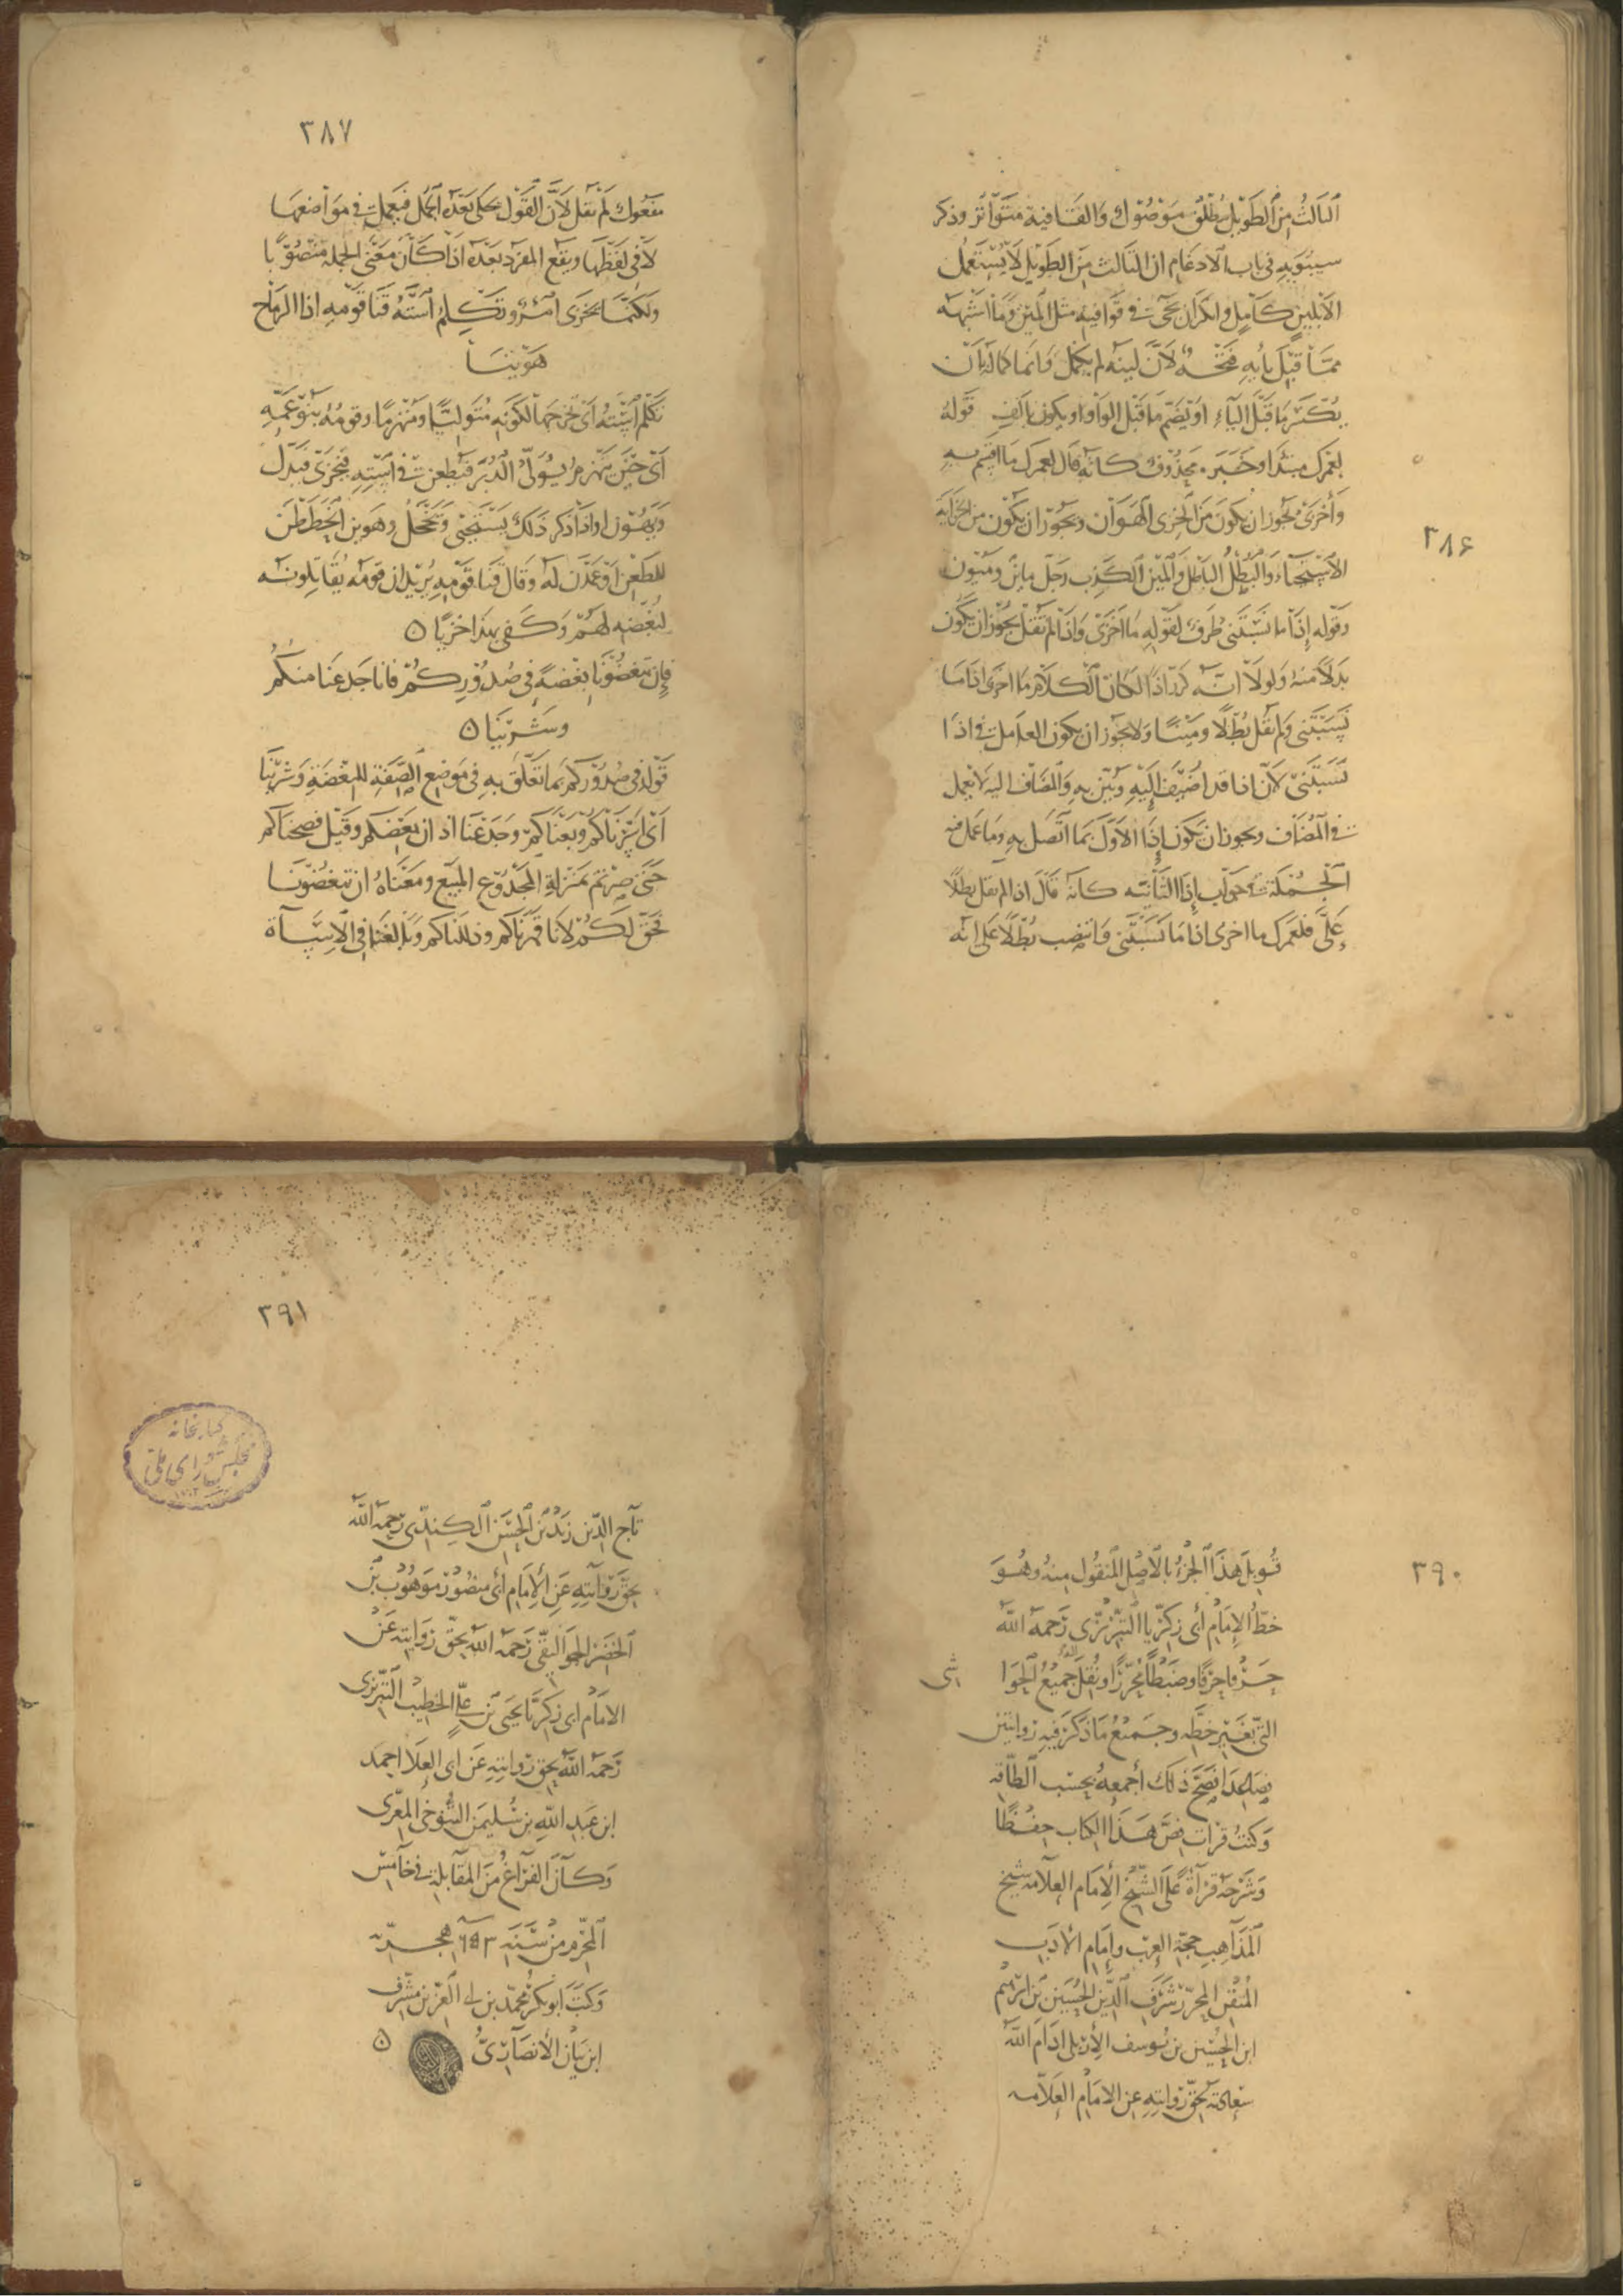 ٣٨۶
الثالث من الطويل مطلق موصول والقافية متواتر وذكر
سيبويه في باب الادغام ان الثالث من الطويل لا يستعمل
الا بلين كامل وانكر ان يجى في قوافيه مثل المين وما اشبهه
مما قبل يايه فتحه لان لينه لم يكمل وانما كماله بان
يكسر ما قبل الياء او يضم ما قبل الواو او يكون بالف قوله
لعمرك مبتدا وخبره محذوف كانه قال لعمرك ما اقسم به
وأخزى يجوز ان يكون من الخزى الهوان ويجوز ان يكون من الخزاية
الاستحياء والبطل الباطل والمين الكذب رجل ماين وميون
وقوله إذا ما نسبتني ظرف لقوله ما اخزى واذا لم تقل يجوز ان يكون
بدلا منه ولولا انه كرر اذا لكان الكلام ما اخزى اذا ما
نسبتني ولم تقل بطلا ومينا ولا يجوز ان يكون العامل في اذا
نسبتني لان اذا قد اضيف اليه وبين به والمضاف اليه لا يعمل
في المضاف ويجوز ان تكون إذا الاول بما اتصل به وما عمل فيه
الجملة جواب إذا الثانيه كانه قال اذا لم تقل بطلا
علي فلعمرك ما اخزى اذا ما نسبتني وانتصب بطلا على انه
٣٨٧
مفعول لم تقل لان القول يحكى بعده الجمل فيعمل في مواضعها
لا في لفظها ويقع المفرد بعده اذا كان معنى الجملة منصوبا
ولكنما يخزى امرؤ تكلم استه قنا قومه اذا الرماح
هوينا
تكلم استه اى تجرحها لكونه متوليا ومنهزما وقومه بنو عمه
اى حين ينهزم يولى الدبر فيطعن في استه فيخزى فيذل
ويهون او اذا ذكر ذلك يستحيى ويخجل وهوين انحططن
للطعن او عمدن له وقال قنا قومه يريد ان قومه يقاتلونه
لبغضه لهم وكفى بهذا خزيا ٥
فإن تبغضونا بغضة في صدوركم فانا جدعنا منكم
وشرينا ٥
قوله في صدوركم بما تعلق به في موضع الصفة للبغضة وشرينا
اى اسرناكم وبعناكم وجدعنا اذ ان بعضكم وقيل فضحناكم
حتى صرتم بمنزلة المجدوع المبيع ومعناه ان تبغضونا
فحق لكم لانا قهرناكم وذللناكم وبالغنا في الاساة
٣٩٠
قوبل هذا الجزء بالاصل المنقول منه وهو
خط الإمام أبى زكريا التبريزي رحمه الله
حرفا حرفا وضبطا محررا ونقل جميع الحوا اشى
التى بغير خطه وجميع ما ذكر فيه روايتين
فصاعدا فصح ذلك أجمعه بحسب الطاقه
وكنت قرات نص هذا الكتاب حفظا
وشرحه قرآة على الشيخ الإمام العلامة شيخ
المذاهب حجة العرب وإمام الأدب
المتقن المحرر شرف الدين الحسين بن ابرهيم
ابن الحسين بن يوسف الأربلي ادام الله
سعادته بحق روايته عن الامام العلامه
٣٩١
كتابخانه
مجلس شوراى ملى
تاج الدين زيد بن الحسن الكندي رحمه الله
بحق روايته عن الإمام أبى منصور موهوب بن
الخضر الجواليقى رحمه الله بحق روايته عن
الامام ابى زكريا يحيى بن علي الخطيب التبريزى
رحمه الله بحق روايته عن ابى العلا احمد
ابن عبد الله بن سليمن التنوخى المعرى
وكان الفراغ من المقابلة في خامس
المحرم من سنة ٦٥٣ هجرية
وكتب أبو بكر محمد بن ابى العز بن مشرف
ابن بيان الأنصاري ٥